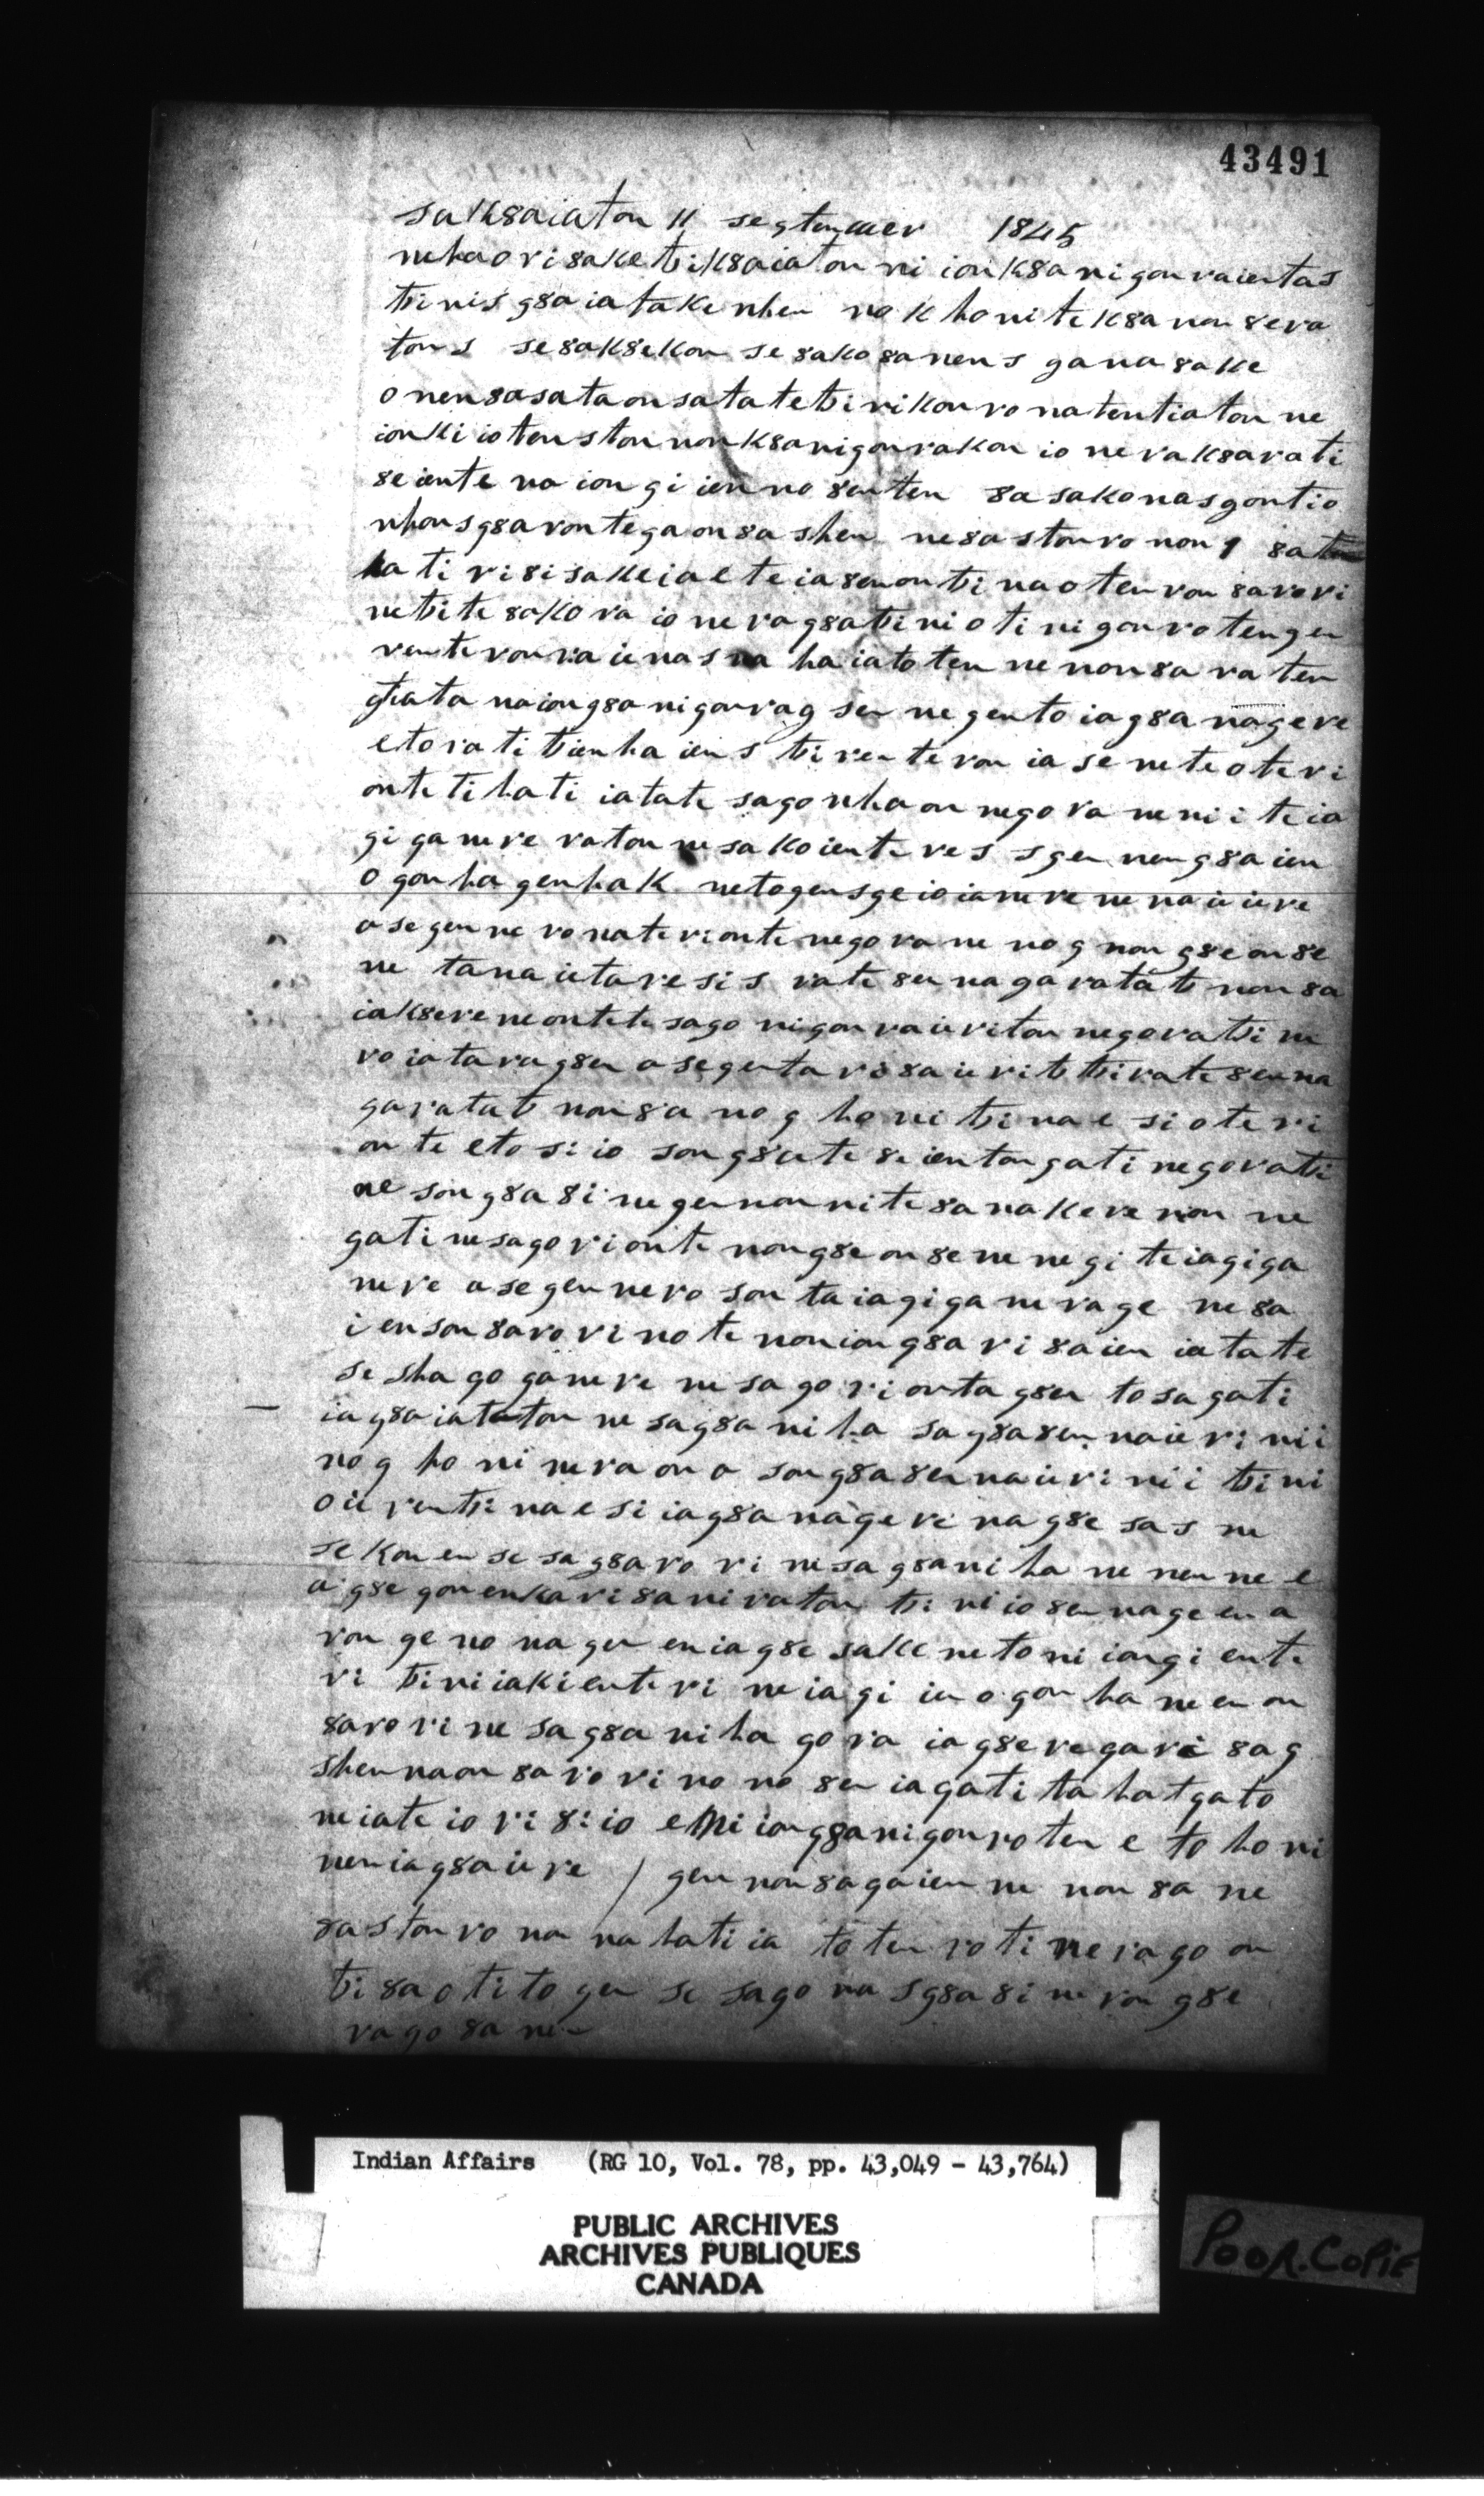 43491
saK8aiaton 11 septem8er 1845
nehaorisake tsiK8aiaton ni ionK8anigonraientas
tsinisg8aiatakenhen noK honi teK8anon8era
tons se8aK8eKon se8aKo8anens gana8aKe
onen8asataonsatatetsiriKonronatentiaton ne
ionKiiotenston nonK8anigonraKon io neraK8arati
8eiente naiongiienno8enten 8asaKonasgontio
nhonsg8arontegaon8ashen ne8astonronon
hatiri8isaKeiaeteia8enontsinaotenron8arori
netsite8aKoraioneragg8atsiniotinigonrotengen
renteronraienasna haiatoten nenon8araten
tsiatanaiong8anigonrag8en negentoiag8anagere
etoratitsienhaiens tsirenteroniase neteoteri
ontetihatiiatate sagonhaon negoraneniiteia
giganereratonnesaKoienteres sgennen g8aien
ogonhagenhaK netogensgeioianere nenaiiere
asegenneronaterionte negoranenog nong8eon8e
ne tanaietaresis rate8ennagaratats non8a
iaK8ereneontetesagonigonraieriton negoratsi ne
roiatarag8en asegentaro8aierits tsirate8enna
garatats non8a nog honi tsinaesioteri
onteetosiio song8ate8eientongati negoratsi
ne song8a8inegennonnite8anaKerenon ne
gati nesagorionte nong8eon8e ne negiteiagiga
nere asegennero son taiagiganerage ne8a
ienson8arorinote noniong8ari8aien iatate
seshagoganere nesagoriontag8en tosagati
iag8aiataton nesag8aniha sag8a8ennaierinii
nog honi neraona song8a8ennaierinii tsini
oierentsinaesiiag8anagerenag8esas ne
seKonensesag8arori nesag8aniha nenenne e
aig8egonenKari8aniraton tsiniio8ennageena
rongenonagen eniag8esaKe netoniiongiente
ri tsiniiaKienteri neiagiienogonha neenon
8arori nesag8aniha gora iag8eregari8ag
shennaon8arori nono8en iagati tahatgato
neiateiori8iio etniiong8anigonroten etohoni
neniag8aiere / gennon8agaien ne non8a ne
8astonronon nahatiiatotenrotineragoon
tsi8aotitogen sesagonasg8a8ineron g8e
rago8ane
Indian Affairs (RG 10, Vol. 78, pp. 43,049 - 43,764)
PUBLIC ARCHIVES
ARCHIVES PUBLIQUES
CANADA
POOR.COPIE